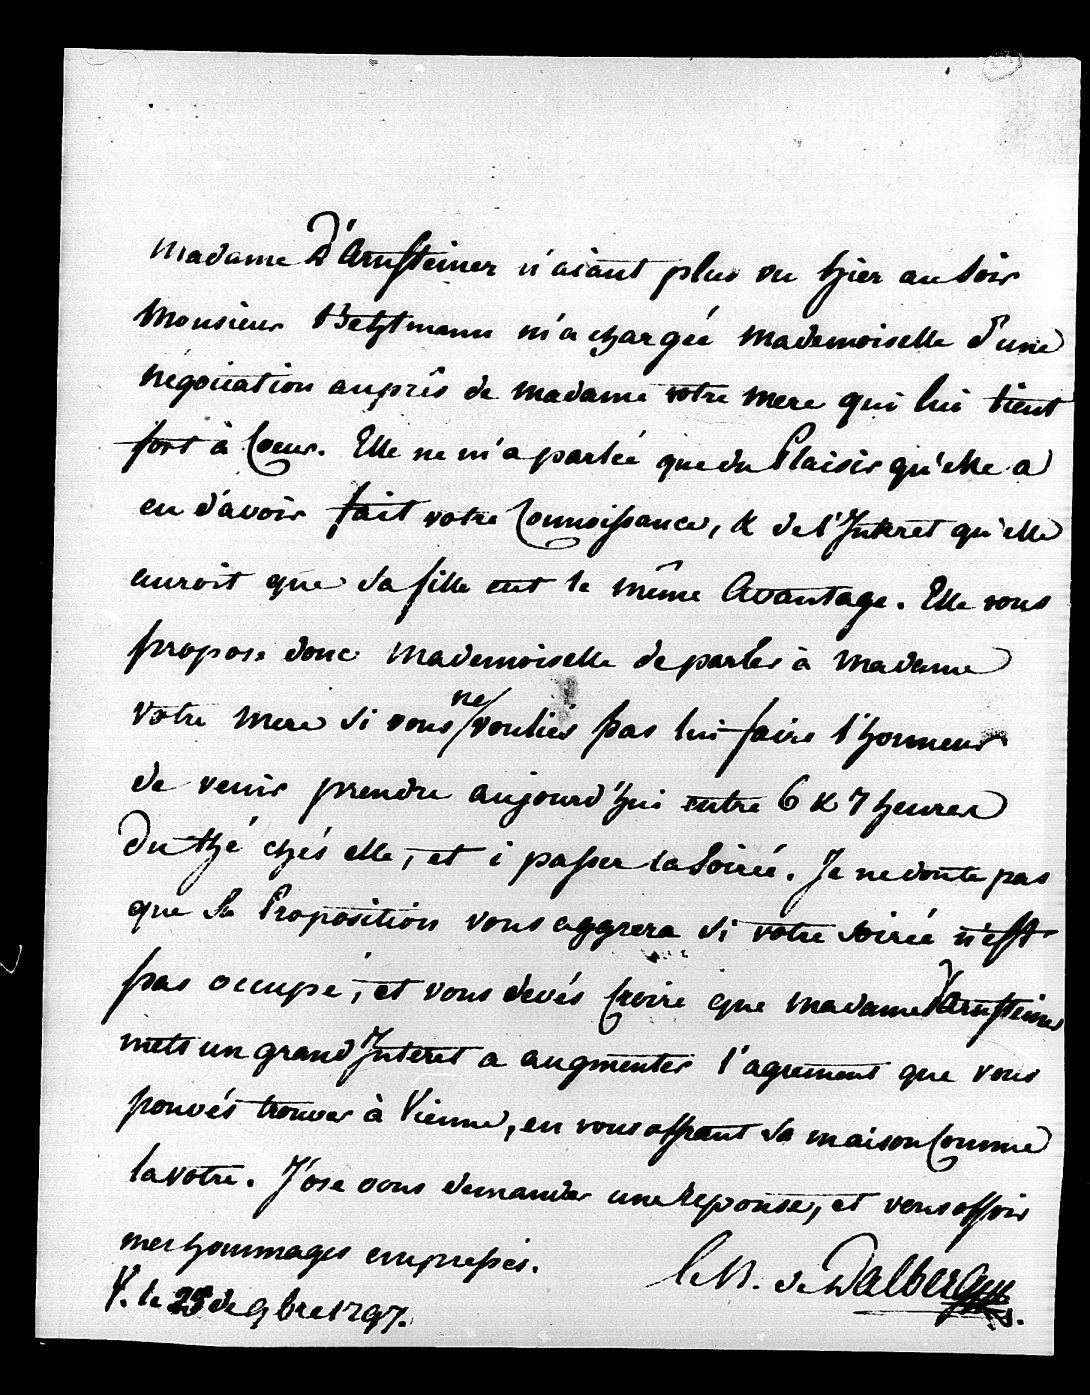 Madame D'Arnsteiner n'aiant plus vu hier au soir
Monsieur Bethmann m'a chargée Mademoiselle d'une
négociation auprès de madame votre mere qui lui tient
fort à Coeur. Elle ne m'a parlée que du Plaisir qu'elle a
eu d'avoir fait votre Connoissance, & de l'Interet qu'elle
auroit que sa fille eut le même Avantage. Elle vous
propose donc Mademoiselle de parler à Madame
votre Mere si vous ne vouliés pas lui faire l'honneur
de venir prendre aujourd'hui entre 6 & 7 heures
Du thé chés elle, et i passer la Soirée. Je ne doute pas
que Sa Proposition vous aggrera si votre soirée n'est
pas occupé, et vous devés Croire que Madame D'Arnsteiner
mett un grand Interet a augmenter l'agrement que vous
pouvés trouver à Vienne, en vous offrant sa maison Comme
la votre. J'ose vous demander une Reponse, et vous offrir
mes hommages empressés.
le B. de Dalberg
V. le 28 de 9bre 1797.